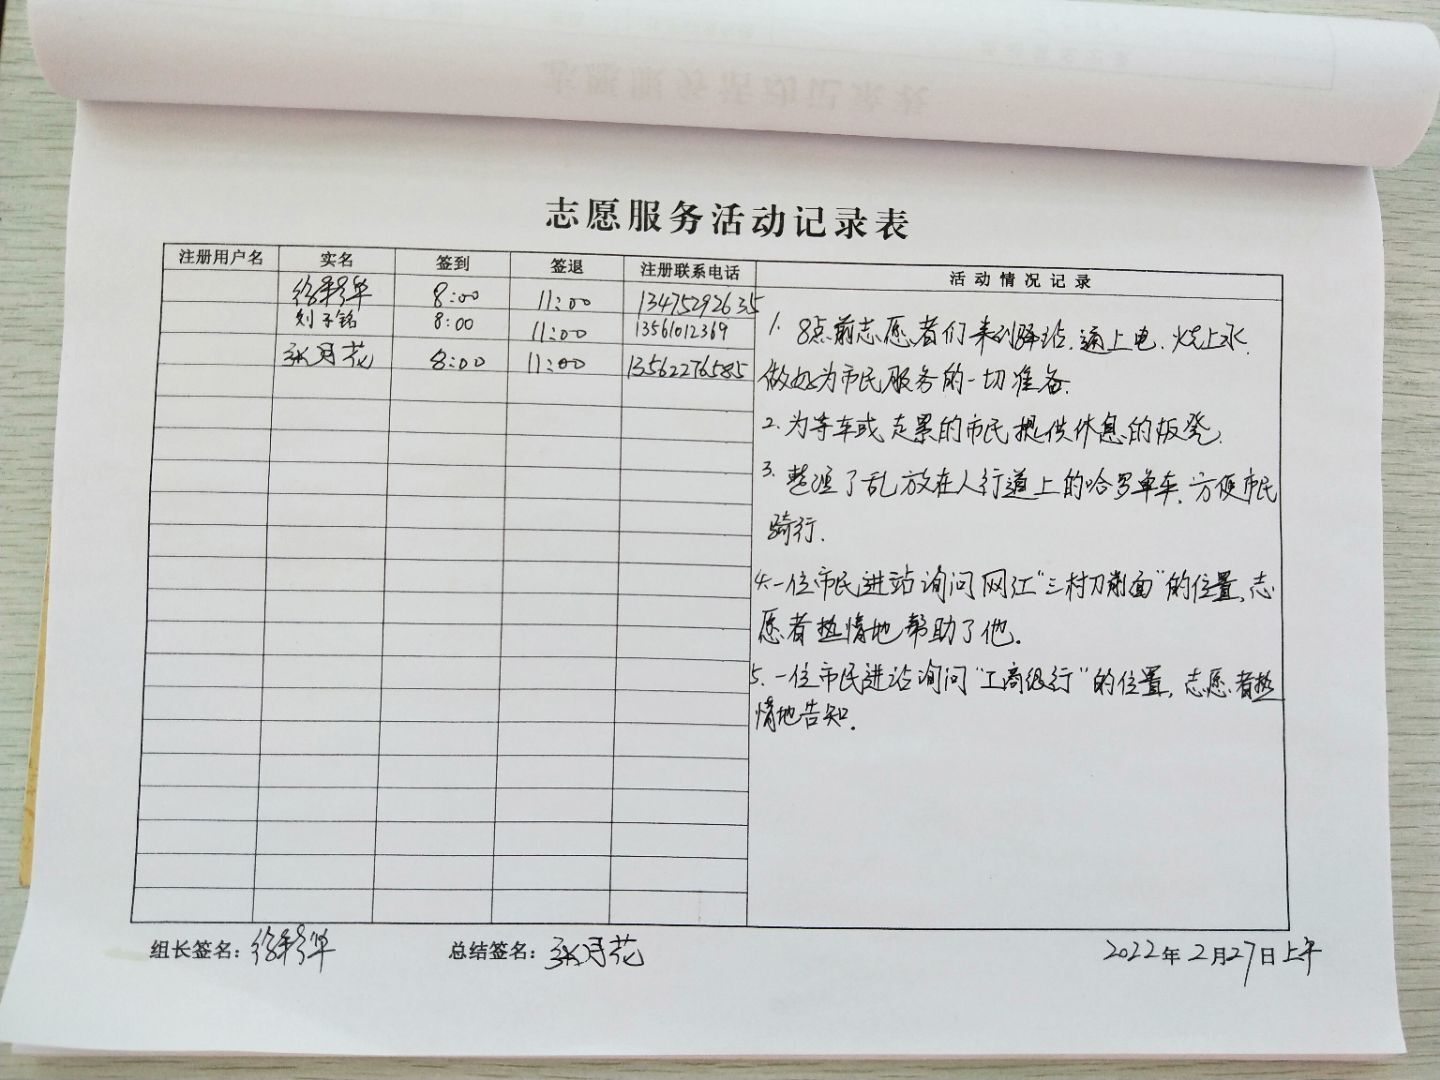 志愿服务活动记录表
注册用户名 实名 签到 签退 注册联系电话 活动情况记录
8:00 11:00 13475292635
刘子铭 8:00 11:00 13561012369
张月花 8:00 11:00 13562276585
1. 8点前志愿者们来到驿站.通上电.烧上水.
做好为市民服务的一切准备.
2.为等车或走累的市民提供休息的板凳.
3.整理了乱放在人行道上的哈罗单车.方便市民
骑行.
4.一位市民进站询问网红"三村刀削面"的位置,志
愿者热情地帮助了他.
5.一位市民进站询问"工商银行"的位置,志愿者热
情地告知.
组长签名: 总结签名:张月花 2022年2月27日上午